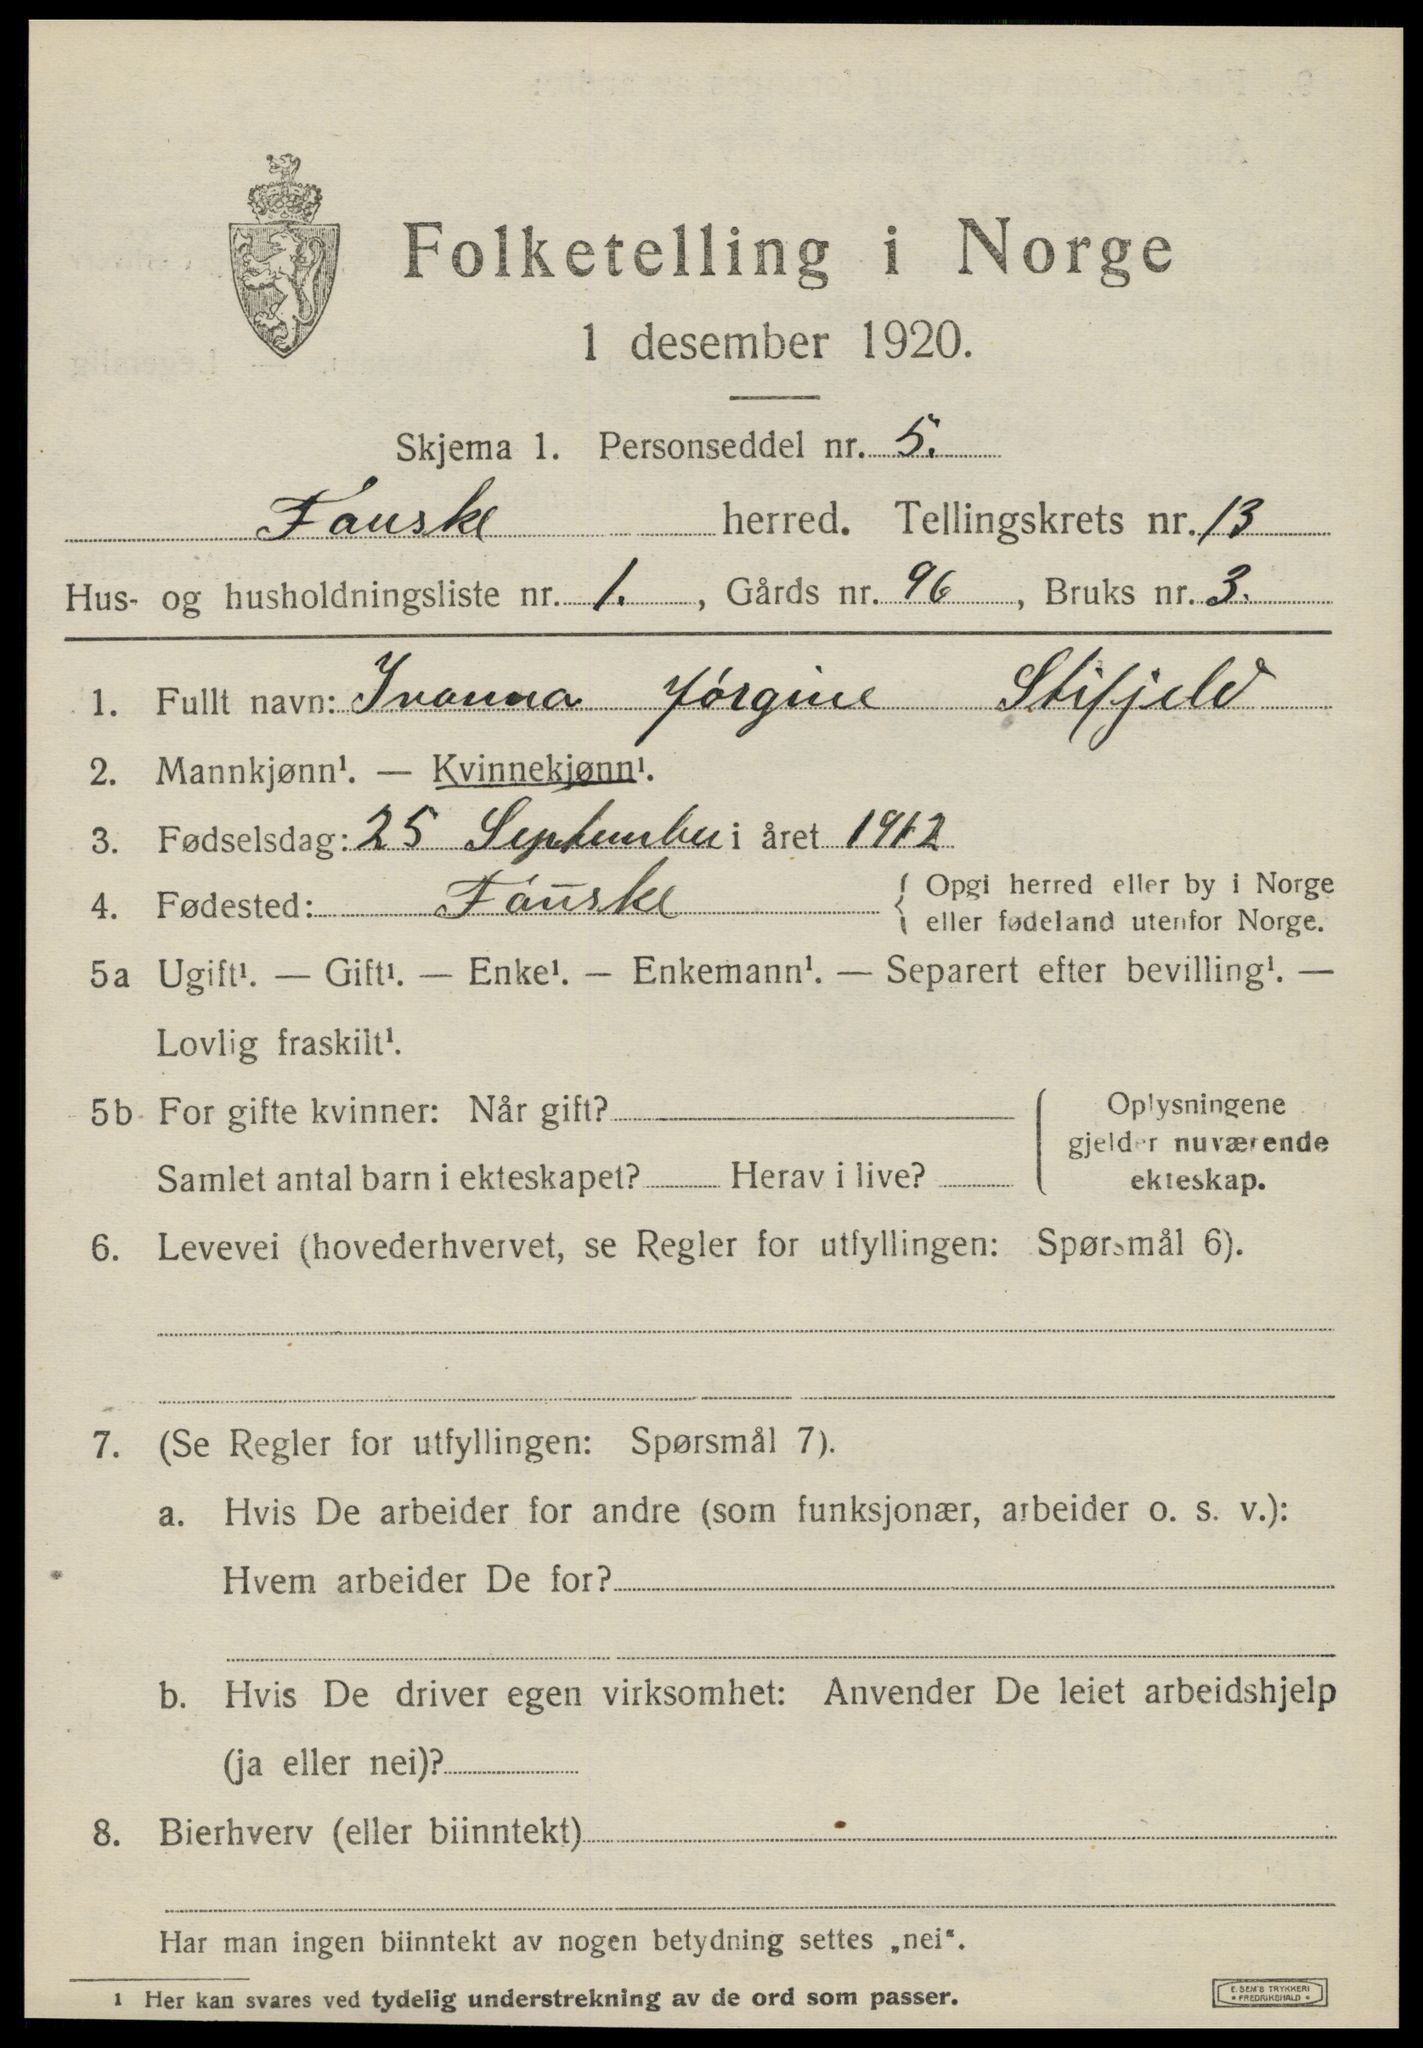 Folketelling i Norge
1 desember 1920.
Skjema 1. Personseddel nr. 5.
Fauske herred. Tellingskrets nr. 13
Hus- og husholdningsliste nr. 1., Gårds nr. 96, Bruks nr. 3.
1. Fullt navn: Ivanna Jörgine Stifjeld
2. Mannkjønn¹. — Kvinnekjønn¹.
3. Fødselsdag: 25 September i året 1912
4. Fødested: Fauske { Opgi herred eller by i Norge
eller fødeland utenfor Norge.
5a Ugift¹. — Gift¹. — Enke¹. — Enkemann¹. — Separert efter bevilling¹. —
Lovlig fraskilt¹.
5b For gifte kvinner: Når gift?
Samlet antal barn i ekteskapet? Herav i live?
Oplysningene
gjelder nuværende
ekteskap.
6. Levevei (hovederhvervet, se Regler for utfyllingen: Spørsmål 6).
7. (Se Regler for utfyllingen: Spørsmål 7).
a. Hvis De arbeider for andre (som funksjonær, arbeider o. s. v.):
Hvem arbeider De for?
b. Hvis De driver egen virksomhet: Anvender De leiet arbeidshjelp
(ja eller nei)?
8. Bierhverv (eller biinntekt)
Har man ingen biinntekt av nogen betydning settes „nei“.
¹ Her kan svares ved tydelig understrekning av de ord som passer.
E. SEM'S TRYKKERI
* FREDRIKSHALD *